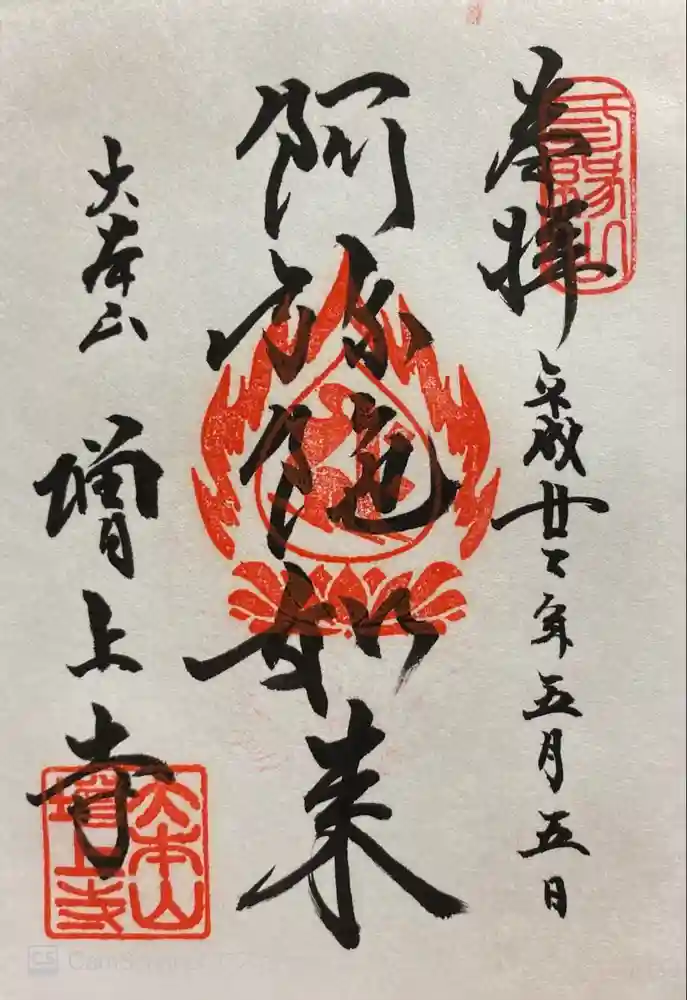 奉拝 平成廿七年五月五日
三縁山
阿弥陀如来
大本山 増上寺
大本山
増上寺
CS CamScanner